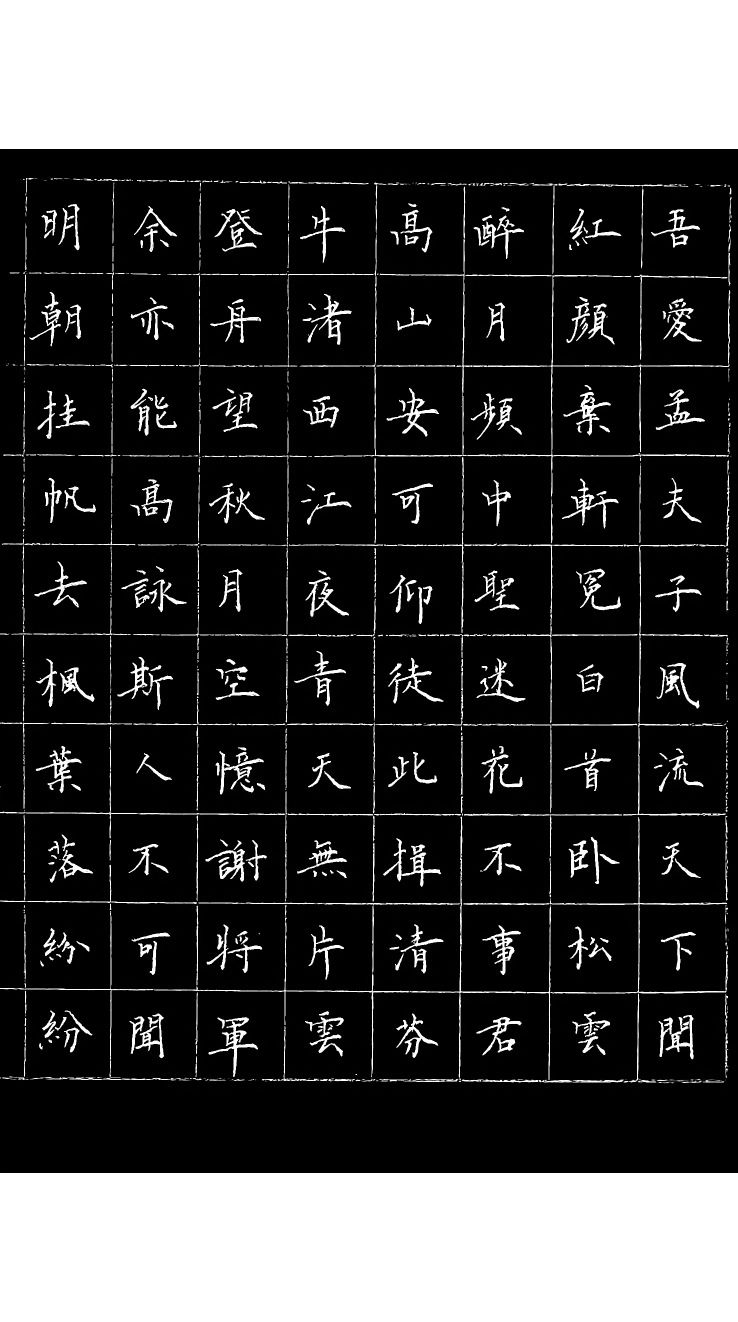 吾愛孟夫子風流天下聞
紅顏棄軒冕白首卧松雲
醉月頻中聖迷花不事君
高山安可仰徒此揖清芬
牛渚西江夜青天無片雲
登舟望秋月空憶謝將軍
余亦能高詠斯人不可聞
明朝挂帆去楓葉落紛紛